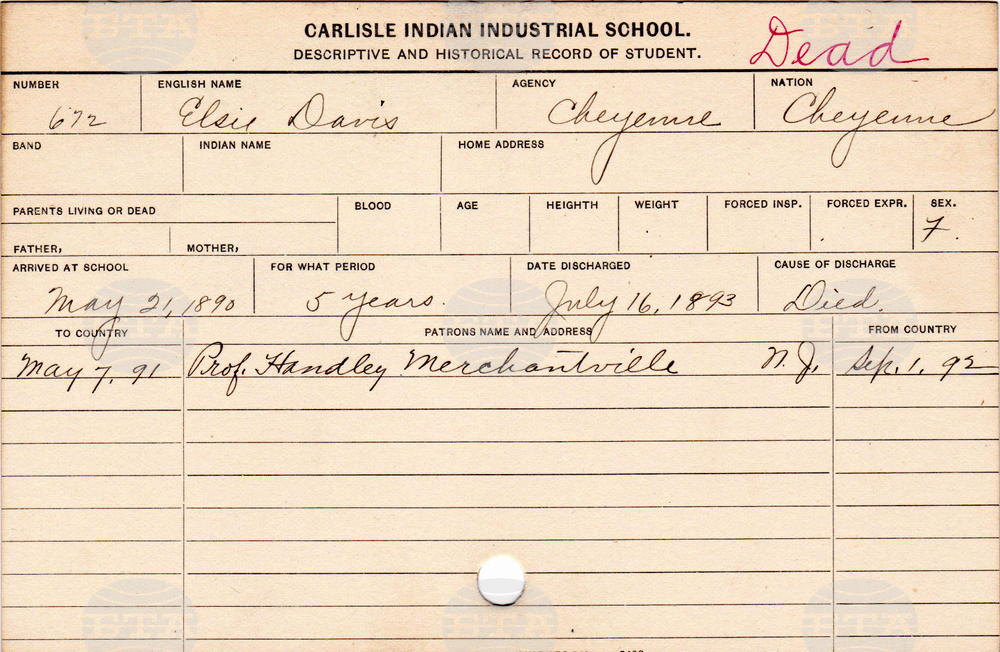 CARLISLE INDIAN INDUSTRIAL SCHOOL.
Dead
DESCRIPTIVE AND HISTORICAL RECORD OF STUDENT.
NUMBER ENGLISH NAME AGENCY NATION
672 Elsie Davis Cheyenne Cheyenne
BAND INDIAN NAME HOME ADDRESS
PARENTS LIVING OR DEAD BLOOD AGE HEIGHTH WEIGHT FORCED INSP. FORCED EXPR. SEX.
F.
FATHER, MOTHER,
ARRIVED AT SCHOOL FOR WHAT PERIOD DATE DISCHARGED CAUSE OF DISCHARGE
May 21, 1890 5 years. July 16, 1893 Died.
TO COUNTRY PATRONS NAME AND ADDRESS FROM COUNTRY
May 7, 91 Prof. Handley Merchantville N. J. Sep. 1. 92
ETA